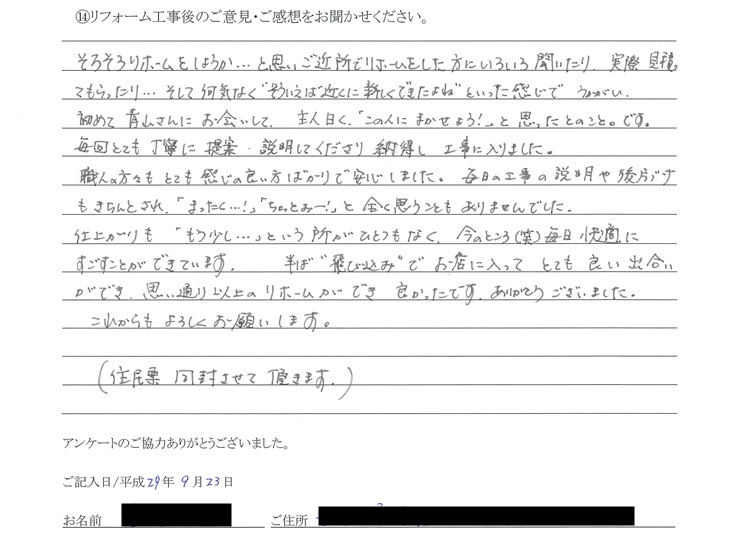 ⑭リフォーム工事後のご意見・ご感想をお聞かせください。
そろそろリホームをしようか…と思いご近所でリホームをした方にいろいろ聞いたり、実際見積
てもらったり…そして何気なく“そういえば近くに新しくできたよね”といった感じでうかがい、
初めて青山さんにお会いして、主人曰く、「この人にまかせよう!」と思ったとのこと。です。
毎回とても丁寧に提案・説明してくださり納得し工事に入りました。
職人の方々もとても感じの良い方ばかりで安心しました。毎日の工事の説明や後片づけ
もきちんとされ、「まったく…!」「ちょっとぉー!」と全く思うこともありませんでした。
仕上がりも「もう少し…」という所がひとつもなく、今のところ(笑)毎日快適に
すごすことができています。半ば“飛び込み”でお店に入ってとても良い出合い
ができ、思い通り以上のリホームができ良かったです。ありがとうございました。
これからもよろしくお願いします。
(住民票同封させて頂きます。)
アンケートのご協力ありがとうございました。
ご記入日/平成29年9月23日
お名前 ご住所